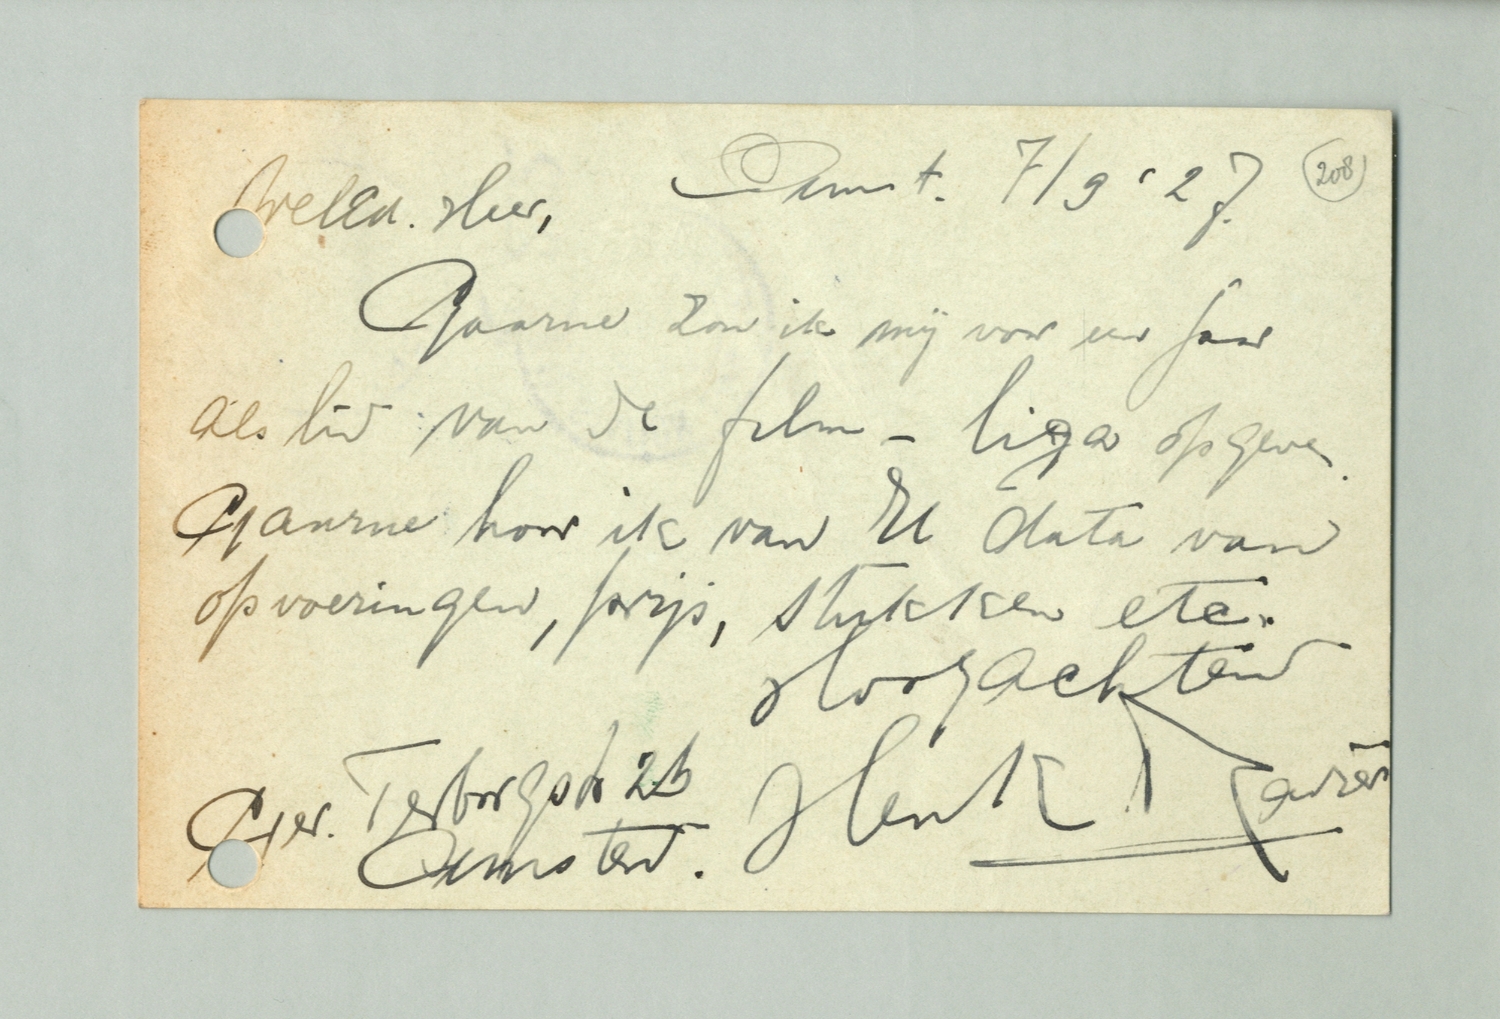 Amst. 7/9 '27. 208
WelEd. Heer,
Gaarne zou ik mij voor een jaar
als lid van de film-liga opgeven.
Gaarne hoor ik van U data van
opvoeringen, prijs, stukken etc.
Hoogachtend
Henk
Ger. Terborgstr 26
Amsterd.